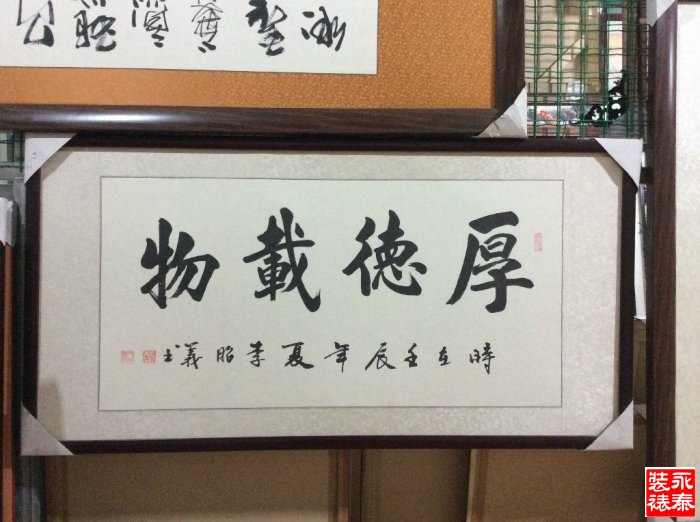 厚德載物
時在壬辰年夏李昭義书
永泰
装裱